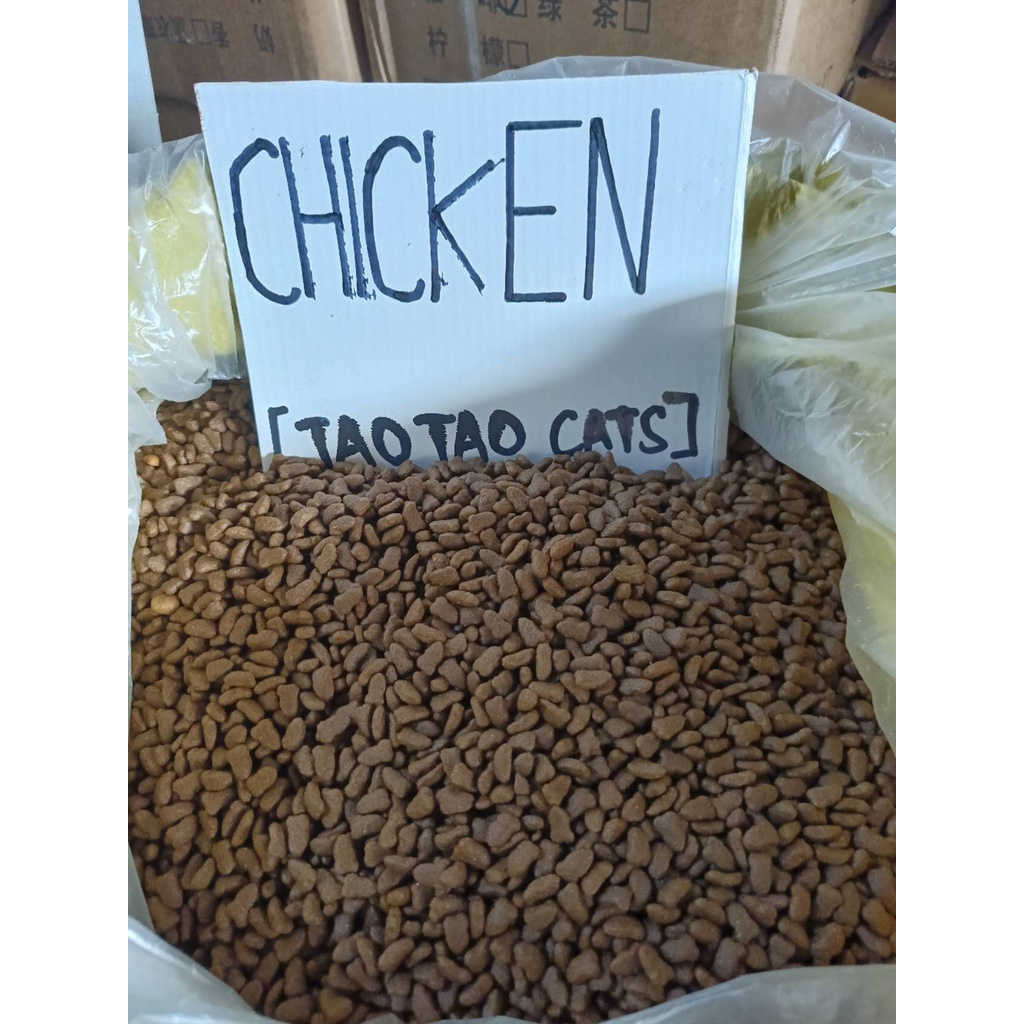 绿茶□
柠檬□
CHICKEN
[TAO TAO CATS]